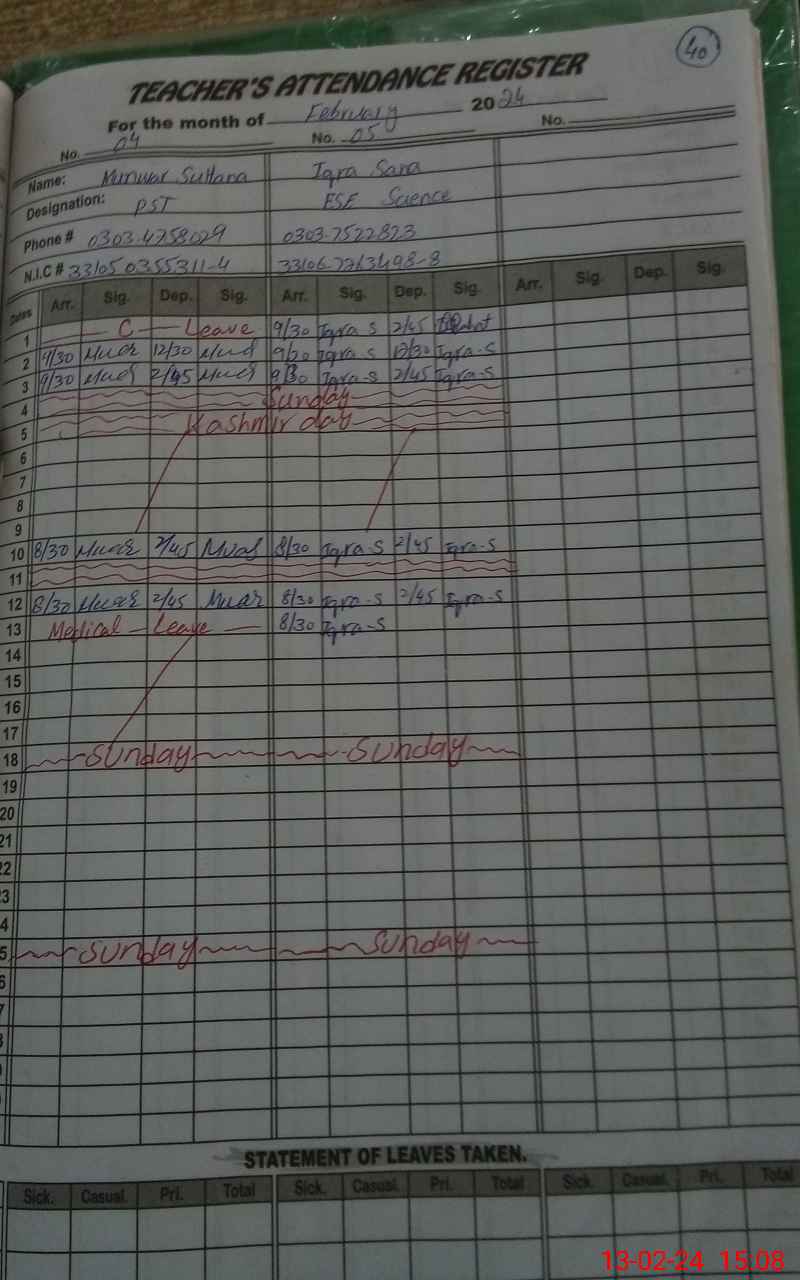 40
TEACHER'S ATTENDANCE REGISTER
For the month of February 2024
No. 04 No. 05 No.
Name: Munwar Sultana Iqra Sana
Designation: PST ESE Science
Phone # 0303-4758029 0303-7522823
N.I.C # 33105 0355311-4 33106-7763498-8
Dates Arr. Sig. Dep. Sig. Arr. Sig. Dep. Sig. Arr. Sig. Dep. Sig.
1 C Leave 9/30 Iqra S 2/45
2 9/30 12/30 9/30 Iqra S 12/30 Iqra-S
3 9/30 2/45 9/30 Iqra-S 2/45 Iqra-S
4 Sunday
5 Kashmir day
6
7
8
9
10 8/30 2/45 8/30 Iqra-S 2/45 Iqra-S
11
12 8/30 2/45 8/30 Iqra-S 2/45 Iqra-S
13 Medical - Leave 8/30 Iqra-S
14
15
16
17
18 Sunday Sunday
19
20
21
22
3
4
5 Sunday Sunday
6
7
STATEMENT OF LEAVES TAKEN.
Sick. Casual. Pri. Total Sick. Casual. Pri. Total Sick. Casual. Pri. Total
13-02-24 15:08